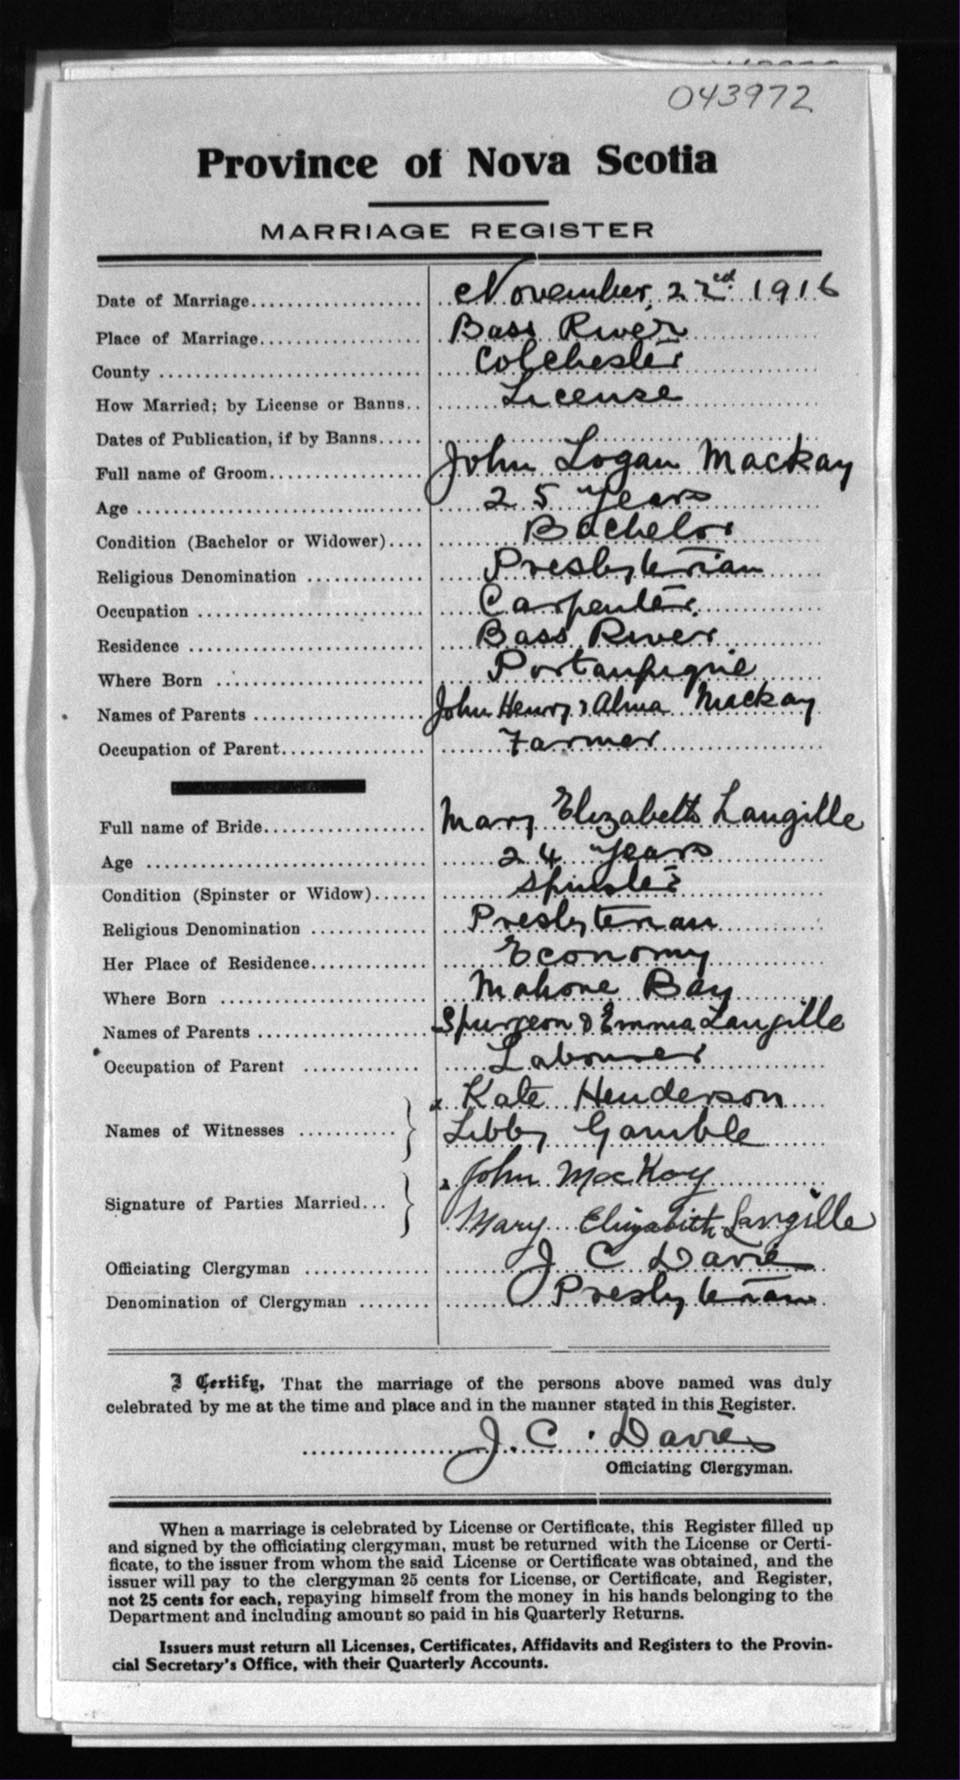 043972
Province of Nova Scotia
MARRIAGE REGISTER
Date of Marriage.................... November 22nd 1916
Place of Marriage................... Bass River
County .............................. Colchester
How Married; by License or Banns.. License
Dates of Publication, if by Banns.....
Full name of Groom.................. John Logan Mackay
Age .................................. 25 years
Condition (Bachelor or Widower).... Bachelor
Religious Denomination ............. Presbyterian
Occupation .......................... Carpenter
Residence ........................... Bass River
Where Born ......................... Portaupique
Names of Parents ................... John Henry & Alma Mackay
Occupation of Parent................ Farmer
Full name of Bride.................. Mary Elizabeth Langille
Age ................................. 24 years
Condition (Spinster or Widow)...... Spinster
Religious Denomination ............ Presbyterian
Her Place of Residence............. Economy
Where Born ........................ Mahone Bay
Names of Parents .................. Spurgeon & Emma Langille
Occupation of Parent ............. Labourer
Kate Henderson
Names of Witnesses ...........
Libby Gamble
John MacKay
Signature of Parties Married...
Mary Elizabeth Langille
Officiating Clergyman .............. J C Davies
Denomination of Clergyman ........ Presbyterian
I Certify, That the marriage of the persons above named was duly
celebrated by me at the time and place and in the manner stated in this Register.
J. C. Davies
Officiating Clergyman.
When a marriage is celebrated by License or Certificate, this Register filled up
and signed by the officiating clergyman, must be returned with the License or Certi-
ficate, to the issuer from whom the said License or Certificate was obtained, and the
issuer will pay to the clergyman 25 cents for License, or Certificate, and Register,
not 25 cents for each, repaying himself from the money in his hands belonging to the
Department and including amount so paid in his Quarterly Returns.
Issuers must return all Licenses, Certificates, Affidavits and Registers to the Provin-
cial Secretary's Office, with their Quarterly Accounts.